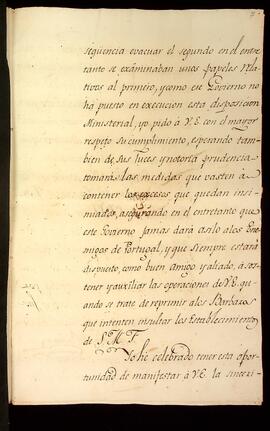 seqüencia evacuar el segundo en el entre
tanto se examinaban unos papeles rela
tivos al primero, y como ese Govierno no
há puesto en execucion esta disposicion
Ministerial, yo pido à V.E. con el mayor
respeto su cumplimiento, esperando tam-
bien de sus luces y notoria prudencia
tomará las medidas que basten a
contener los excesos que quedan insi-
nuados, asegurando en el entretanto que
este Govierno jamas dará asilo alos Ene-
migos de Portugal, y que siempre estará
dispuesto, como buen amigo y aliado, à sos-
tener y auxiliar las operaciones de V.E. qu-
ando se trate de reprimir alos Barbaros
que intenten insultar los Establecimientos
de S. M. F.
Yo hé celebrado tener esta opor-
tunidad de manifestar à V.E. la sinceri-